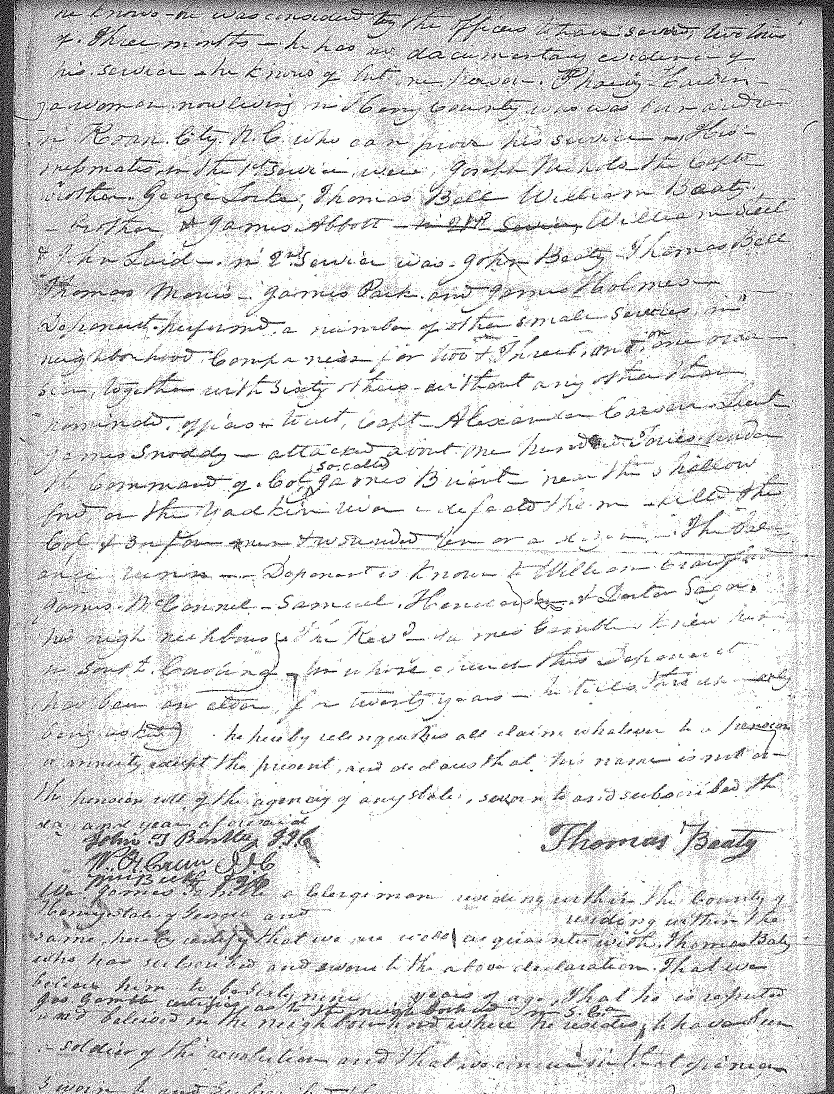 he knows he was considered by the officers to have served two tours
of three months – he has no documentary evidence of
his service – he knows of but one person – Phoeby Carden
a woman now living in Henry County was was born and
in Roan. Cty. N.C. who can prove his service – His
messmates in the 1st Service were, Joseph Nichols the Capts
brother. George Locke, Thomas Bell William Beaty,
– brother & James Abbott – in 2nd Service, William Steel
& John Laird – in 2nd Service was – John Beaty – Thomas Bell
Thomas Morris – James Park and James Holmes –
Deponent performed a number of other small services in
neighborhood Companies for two & three, and on one occa-
sion, together with Sixty others – without any other than
nominal, officers to wit, Capt – Alexander Lieut
James Snoddy – attacked about one hundred Tories under
the Command of Col. so called James Briant near the Shallow
ford on the Yadkin river – defeated them – killed the
Col & 3 or four men & wounded ten or a dozen – The bal-
ance – Deponent is known to William
James McConnel – Samuel & Doctor
his nigh neighbours The Revd – James Gamble knew him
in South Carolina – in whose church this Deponent
has been an elder, for twenty years – he tells this
being asked he hereby relinquishes all claim whatever to a pension
or annuity except the present, and declares that his name is not on
the pension roll of the agency of any state, sworn to and subscribed the
day and year aforesaid
John T Bentley JJC
Thomas Beaty
W. H. JJC
JJC
We James Gamble a Clergeman residing within the County of
Henry State of Georgia and residing within the
same, hereby certify that we are well acquainted with Thomas Beaty
who has subscribed and sworn to the above declaration. That we
believe him to be sixty nine years of age, That he is reputed
Jas. Gamble certifies as to the neighborhood in S. Ca
and believed in the neighbourhood where he resides to have been
a soldier of the revolution and that we concur in that opinion
Sworn to and Subscribed